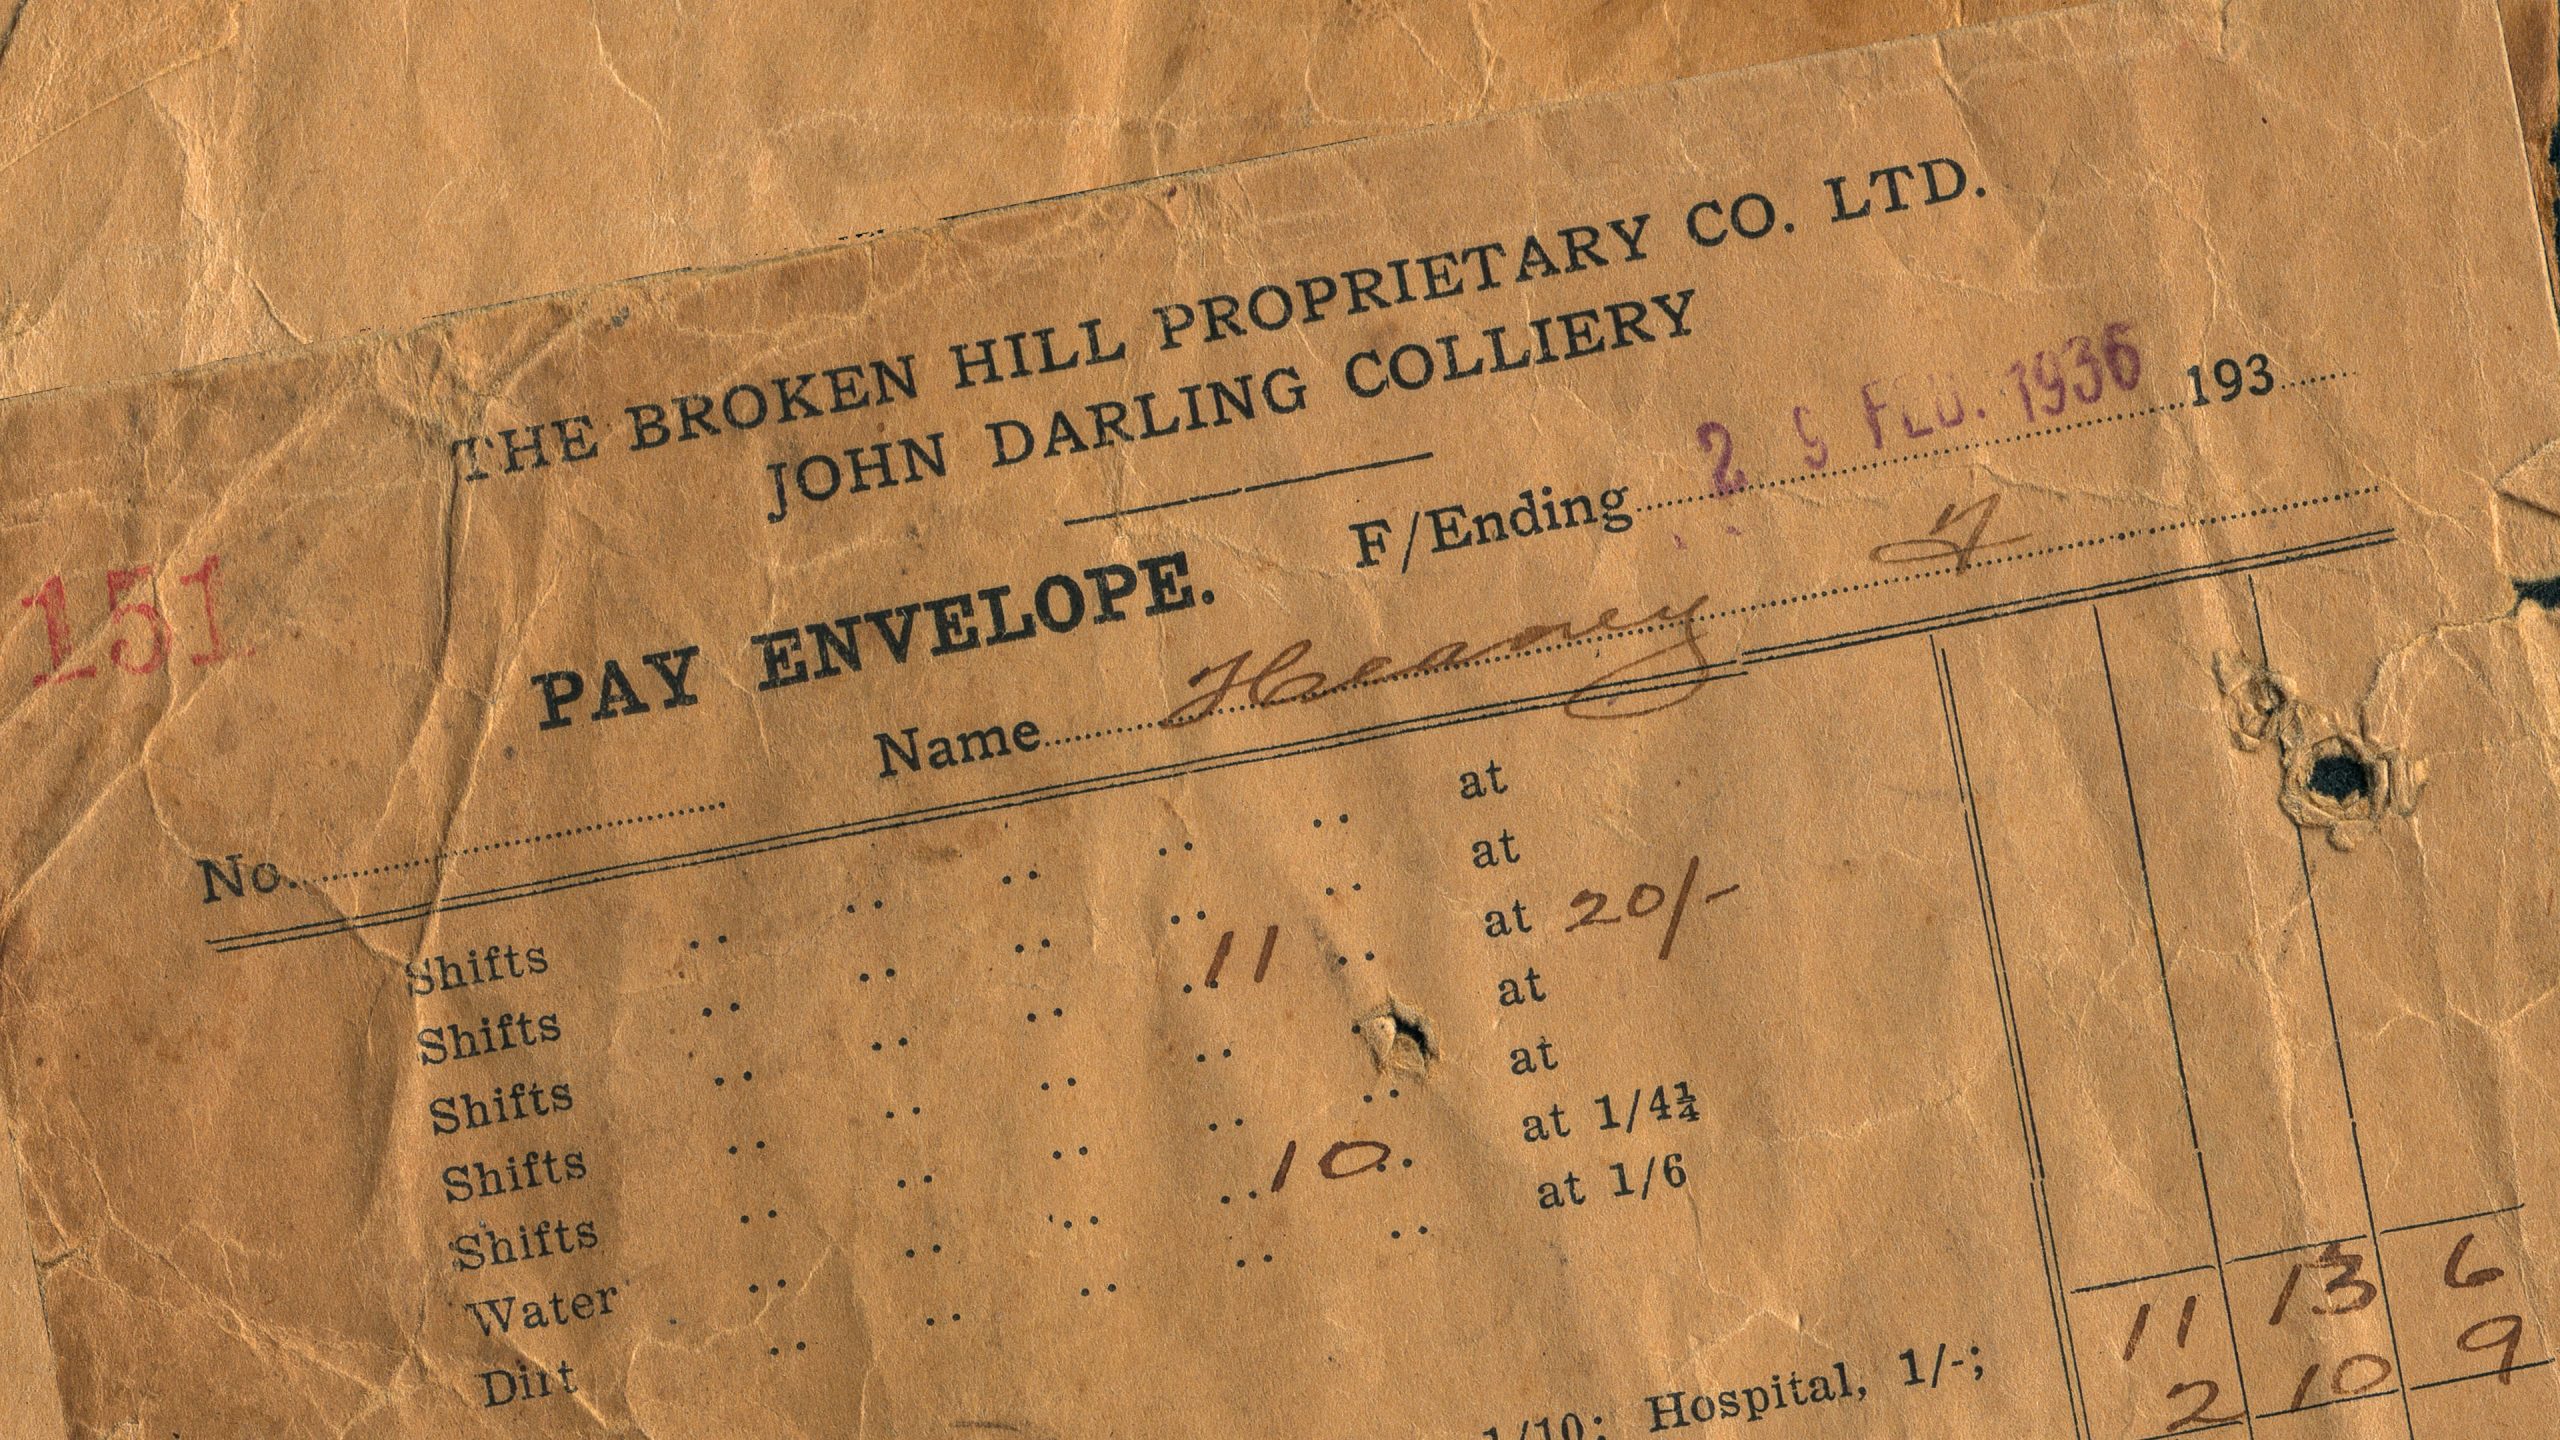 THE BROKEN HILL PROPRIETARY CO. LTD.
JOHN DARLING COLLIERY
151
PAY ENVELOPE. F/Ending 29 FEB. 1936 193
No. Name Heaney
Shifts .. .. .. .. .. at
Shifts .. .. .. .. .. at
Shifts .. .. .. 11 .. at 20/-
Shifts .. .. .. .. .. at
Shifts .. .. .. .. .. at
Water .. .. .. .. 10 .. at 1/4¼
Dirt .. .. .. .. .. at 1/6
11 13 6
1/10; Hospital, 1/-; 2 10 9